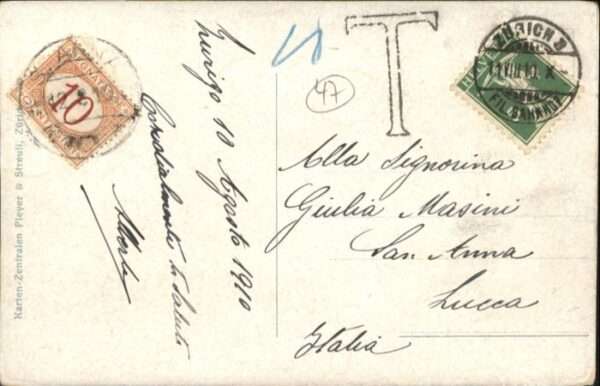 Zurigo 10 Agosto 1910
Cordialmente ti saluto
T
47
10
ZÜRICH 3
11.VIII.10. X
FIL. BAHNHOF
Alla Signorina
Giulia Masini
San. Anna
Lucca
Italia
Karten-Zentralen Pleyer & Streuli, Zürich